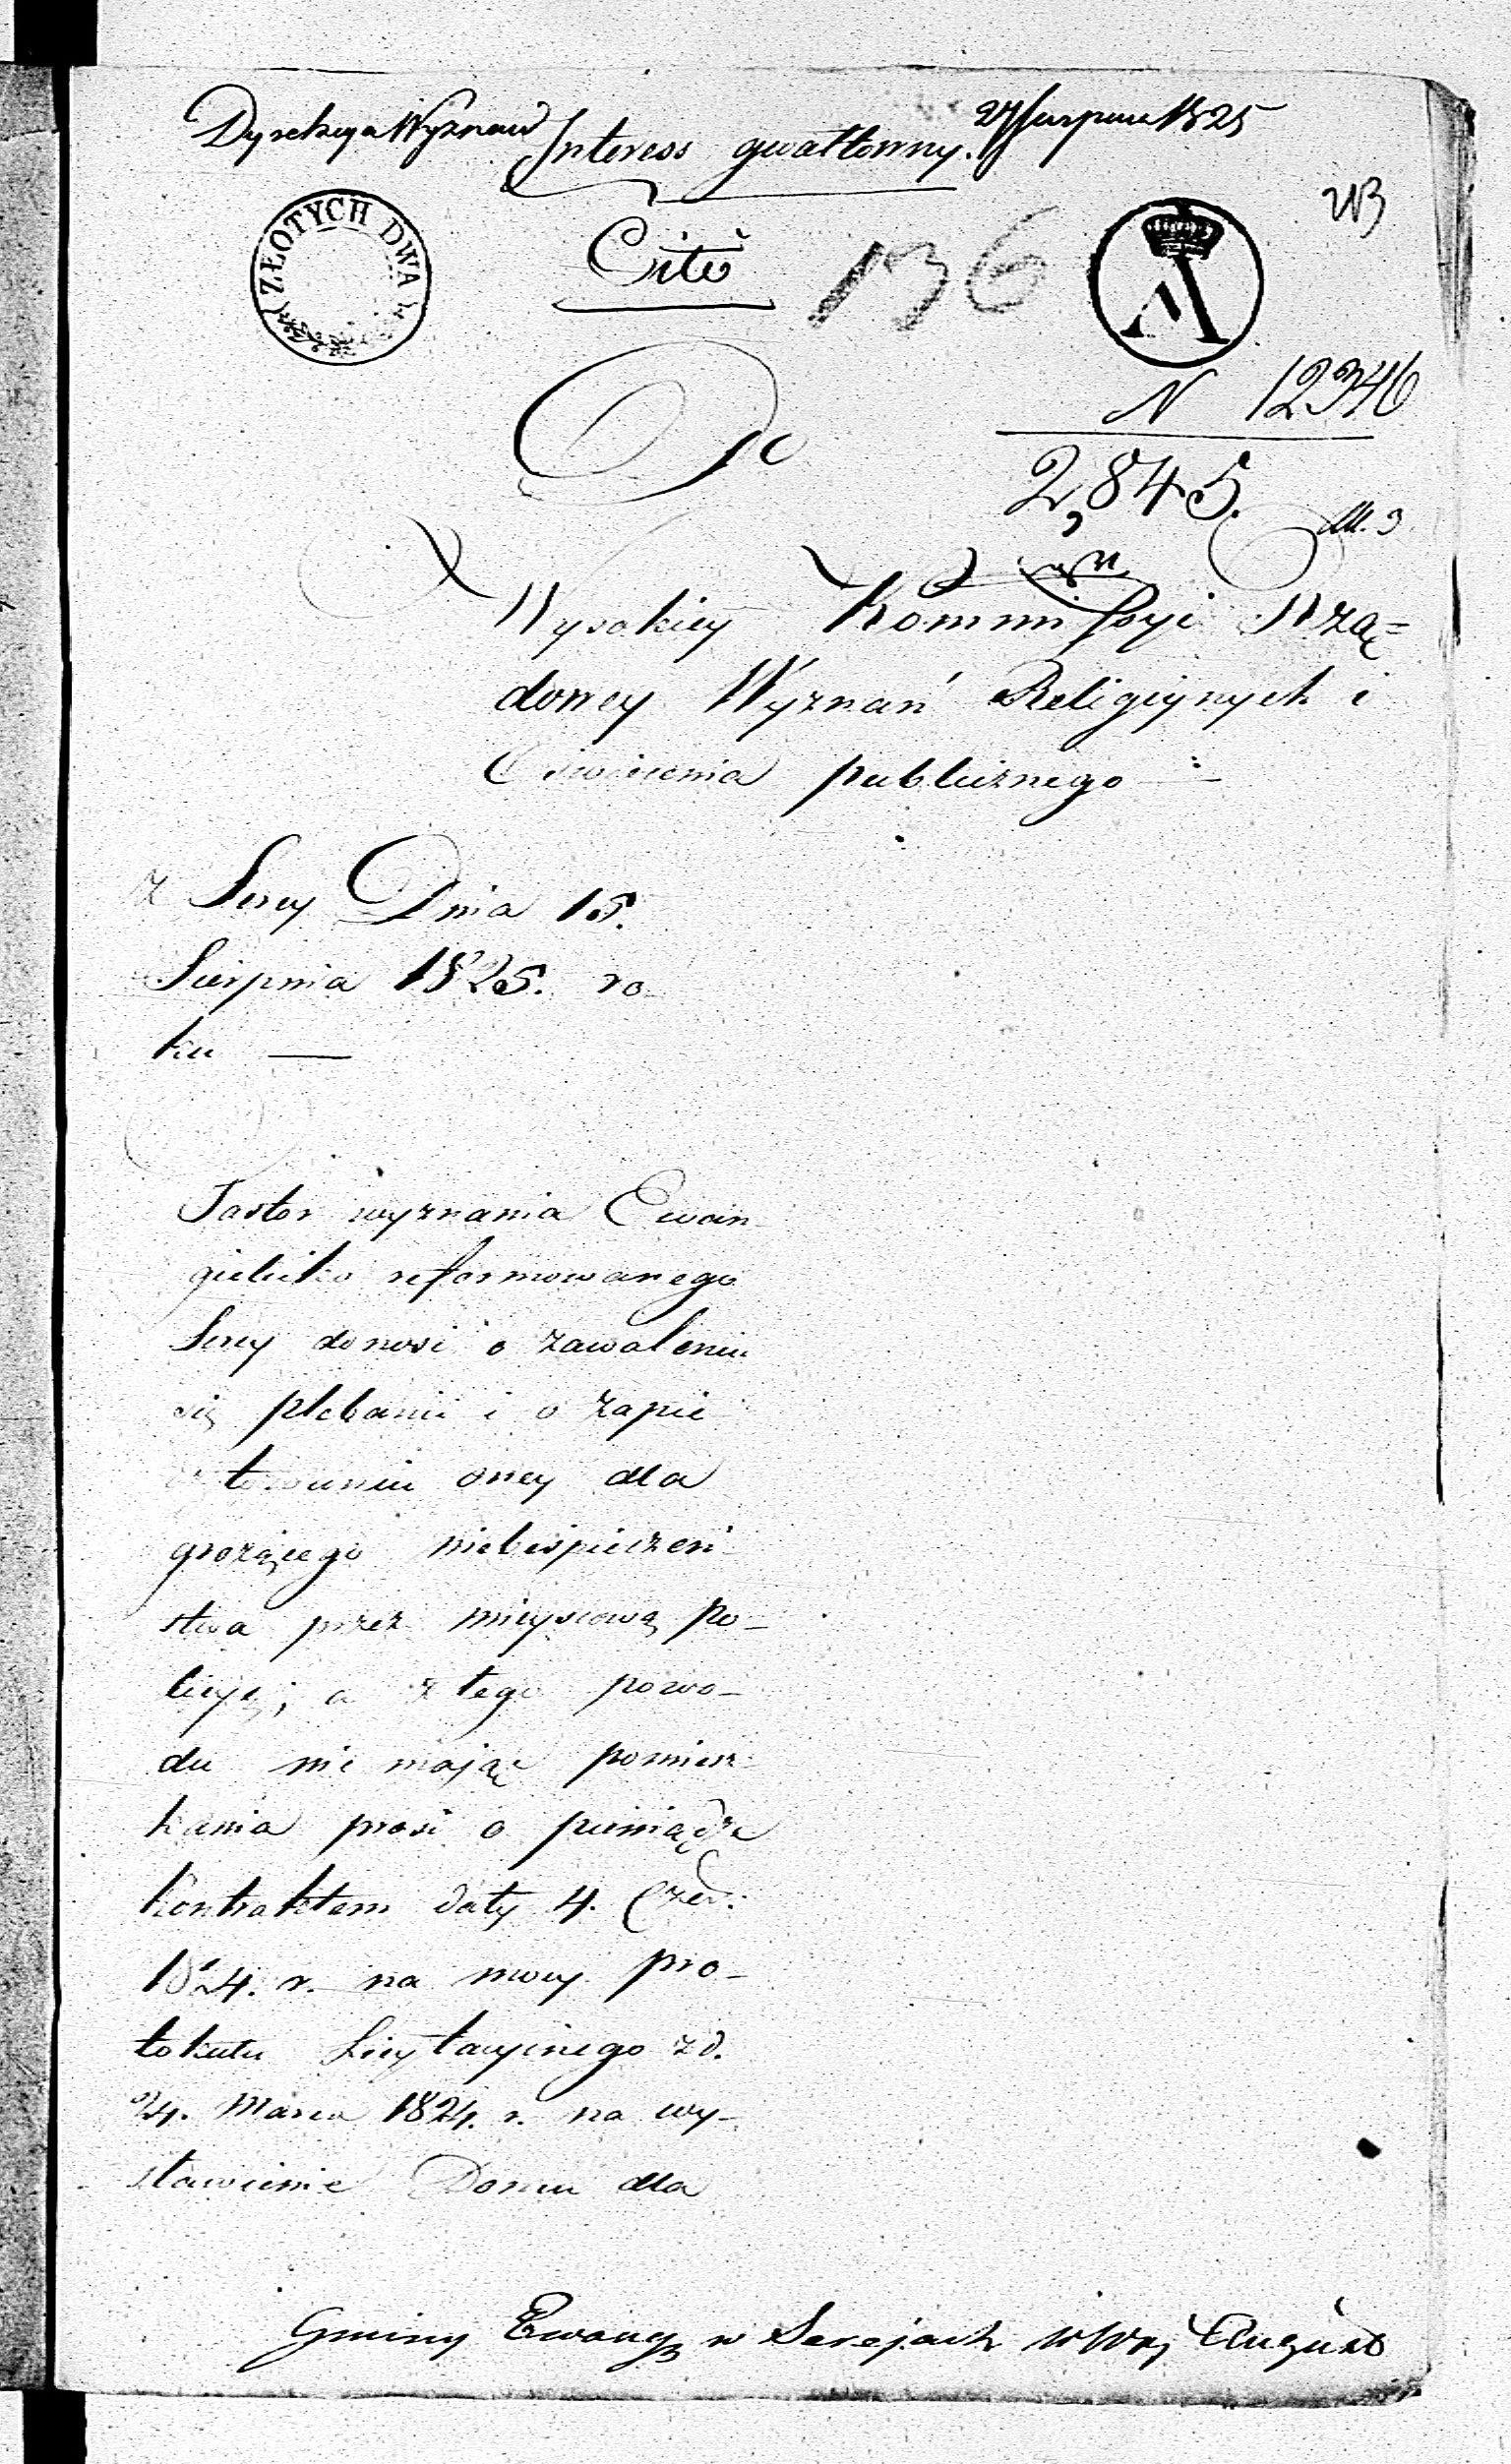 Dyrekcya Wyznań
27 Sierpnia 1825
Interess gwałtowny.
ZŁOTYCH DWA
Cito
136
A
N 12346
2,845.
Do
Wysokiey Kommissyi Rzą=
dowey Wyznań Religiynych i
Oświecenia publicznego
z Serey Dnia 15.
Sierpnia 1825. ro
ku —
Pastor wyznania Ewan
gielicko reformowanego
Serey donosi o zawaleniu
się plebanii i o zapie
czętowaniu oney dla
grożącego niebespieczeń
stwa przez mieyscową po-
licyę, a z tego powo-
du nie mając pomiesz
kania prosi o pieniądze
kontraktem daty 4. Czer:
1824. r. na mocy pro-
tokułu licytacyinego z d.
24. Marca 1824. r. na wy-
stawienie Domu dla
Gminy Ewang w Serejach w Wój August